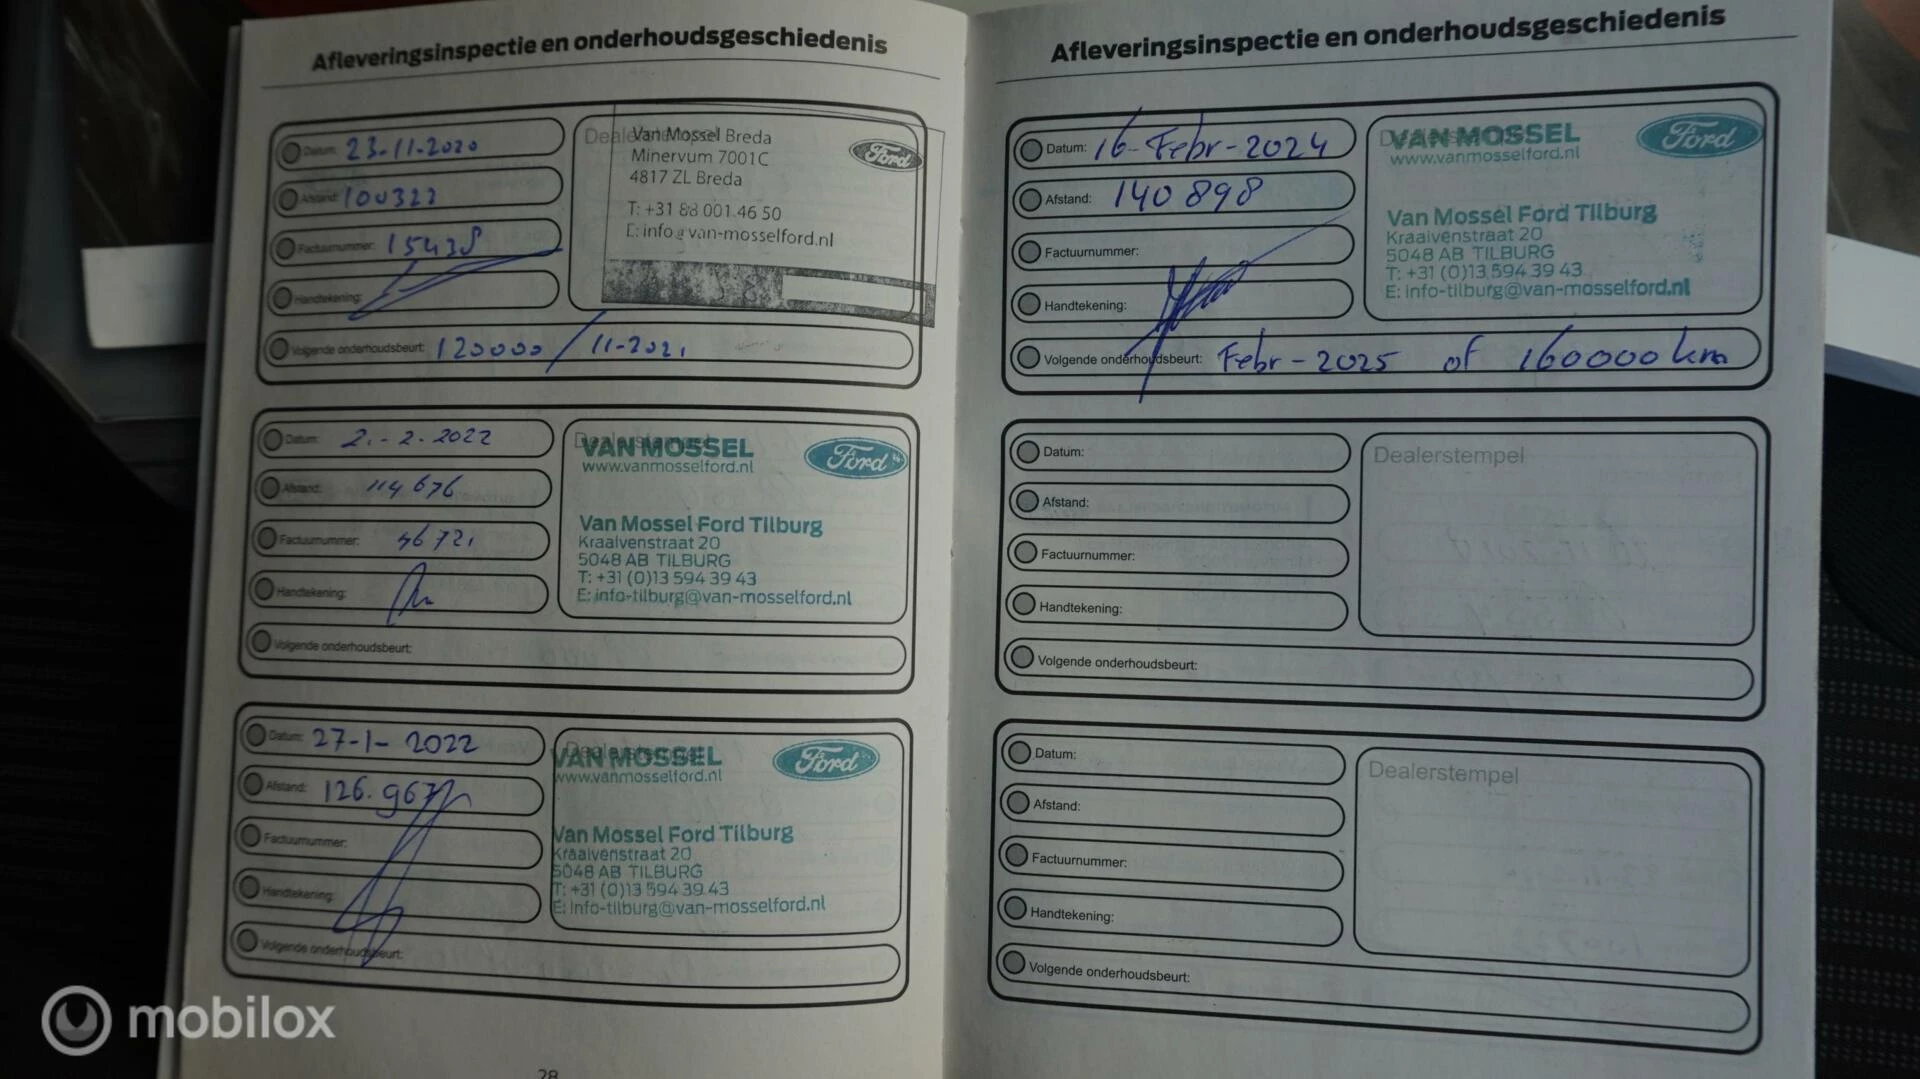 Afleveringsinspectie en onderhoudsgeschiedenis
Datum: 23-11-2020
Afstand: 100322
Factuurnummer: 15438
Handtekening:
Volgende onderhoudsbeurt: 120000 / 11-2021
Dealerstempel
Van Mossel Breda
Minervum 7001C
4817 ZL Breda
T: +31 88 001 46 50
E: info@van-mosselford.nl
Ford
Datum: 2.-2.2022
Afstand: 114676
Factuurnummer: 46721
Handtekening:
Volgende onderhoudsbeurt:
Dealerstempel
VAN MOSSEL
www.vanmosselford.nl
Ford
Van Mossel Ford Tilburg
Kraaivenstraat 20
5048 AB TILBURG
T: +31 (0)13 594 39 43
E: info-tilburg@van-mosselford.nl
Datum: 27-1-2022
Afstand: 126.967
Factuurnummer:
Handtekening:
Volgende onderhoudsbeurt:
Dealerstempel
VAN MOSSEL
www.vanmosselford.nl
Ford
Van Mossel Ford Tilburg
Kraaivenstraat 20
5048 AB TILBURG
T: +31 (0)13 594 39 43
E: info-tilburg@van-mosselford.nl
28
Afleveringsinspectie en onderhoudsgeschiedenis
Datum: 16-Febr-2024
Afstand: 140898
Factuurnummer:
Handtekening:
Volgende onderhoudsbeurt: Febr-2025 of 160000 km
VAN MOSSEL
www.vanmosselford.nl
Ford
Van Mossel Ford Tilburg
Kraaivenstraat 20
5048 AB TILBURG
T: +31 (0)13 594 39 43
E: info-tilburg@van-mosselford.nl
Datum:
Afstand:
Factuurnummer:
Handtekening:
Volgende onderhoudsbeurt:
Dealerstempel
Datum:
Afstand:
Factuurnummer:
Handtekening:
Volgende onderhoudsbeurt:
Dealerstempel
mobilox